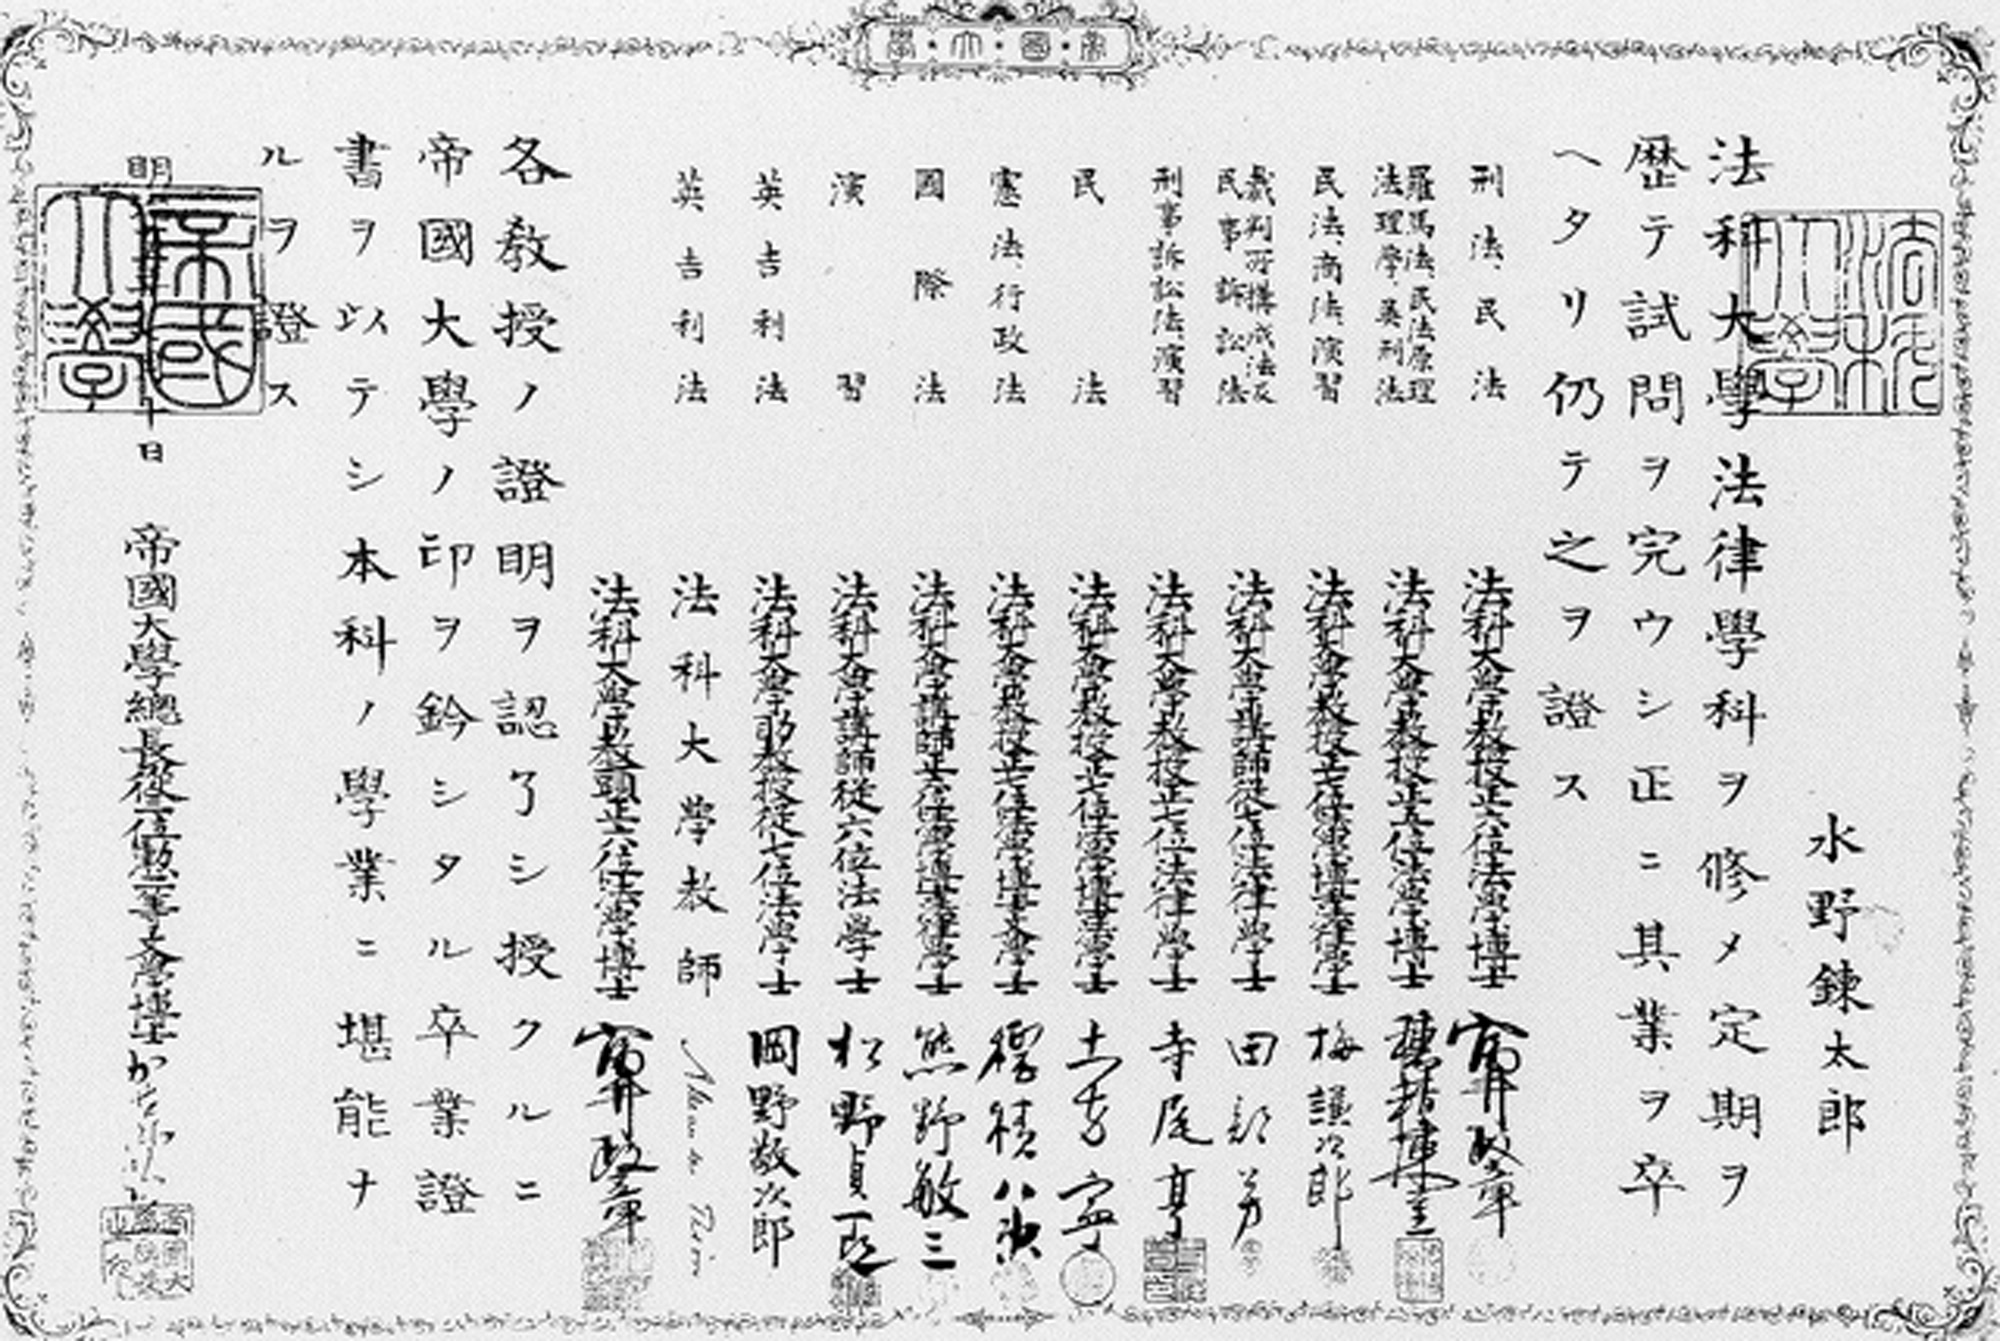 帝國大學
法科大學
水野錬太郎
法科大學法律學科ヲ修メ定期ヲ
歴テ試問ヲ完ウシ正ニ其業ヲ卒
ヘタリ仍テ之ヲ證ス
刑法、民法 法科大學教授正六位法學博士 富井政章
羅馬法、民法原理
法理學、英刑法 法科大學教授正五位法學博士 穗積陳重
民法、商法、演習 法科大學教授 梅謙次郎
裁判所構成法及
民事訴訟法 法科大學講師從七位法律學士 田部芳
刑事訴訟法、演習 法科大學教授正七位法律學士 寺尾亨
民法 法科大學教授正七位 土方寧
憲法、行政法 法科大學教授正七位 穗積八束
國際法 法科大學講師 熊野敏三
演習 法科大學講師從六位法學士 松野貞一郎
英吉利法 法科大學助教授從七位法學士 岡野敬次郎
英吉利法 法科大學教師
法科大學教頭正六位法學博士 富井政章
各教授ノ證明ヲ認了シ授クルニ
帝國大學ノ印ヲ鈐シタル卒業證
書ヲ以テシ本科ノ學業ニ堪能ナ
ルヲ證ス
帝國大學
明 十日 帝國大學總長從 位勲一等文學博士